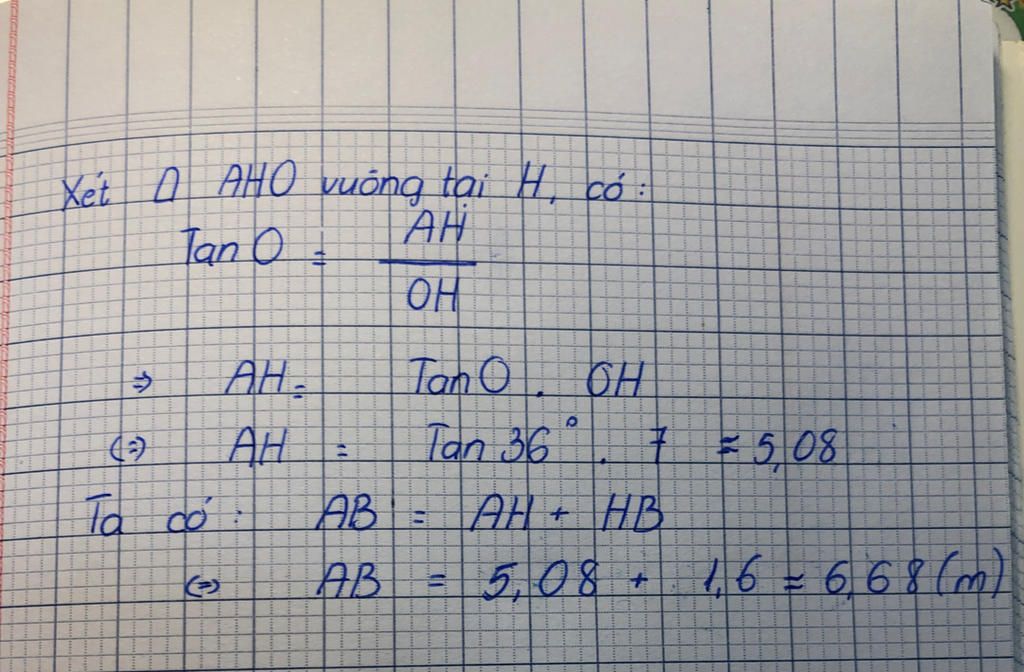 Xét Δ AHO vuông tại H, có:
Tan O = AH / OH
⇒ AH = Tan O . OH
(=) AH = Tan 36° . 7 = 5,08
Ta có: AB = AH + HB
(=) AB = 5,08 + 1,6 = 6,68 (m)